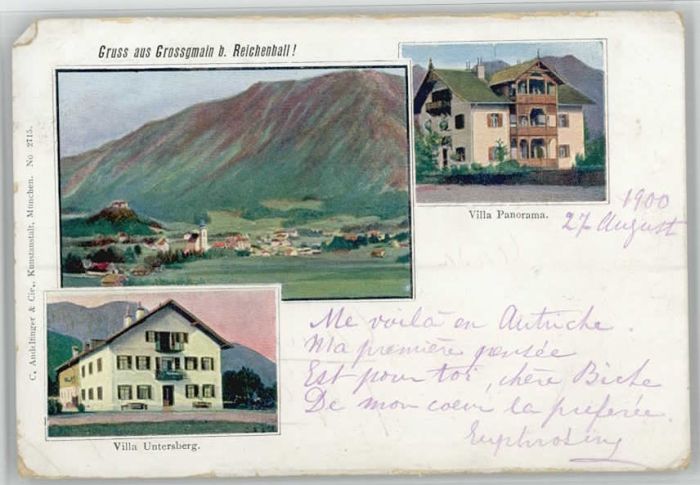 Gruss aus Grossgmain b. Reichenhall!
Villa Panorama.
1900
27 August
C. Andelfinger & Cie., Kunstanstalt, München. No 2715.
Me voilà en Autriche.
Ma première pensée
Est pour toi, chère Biche
De mon coeur la preferée.
Euphrosine
Villa Untersberg.